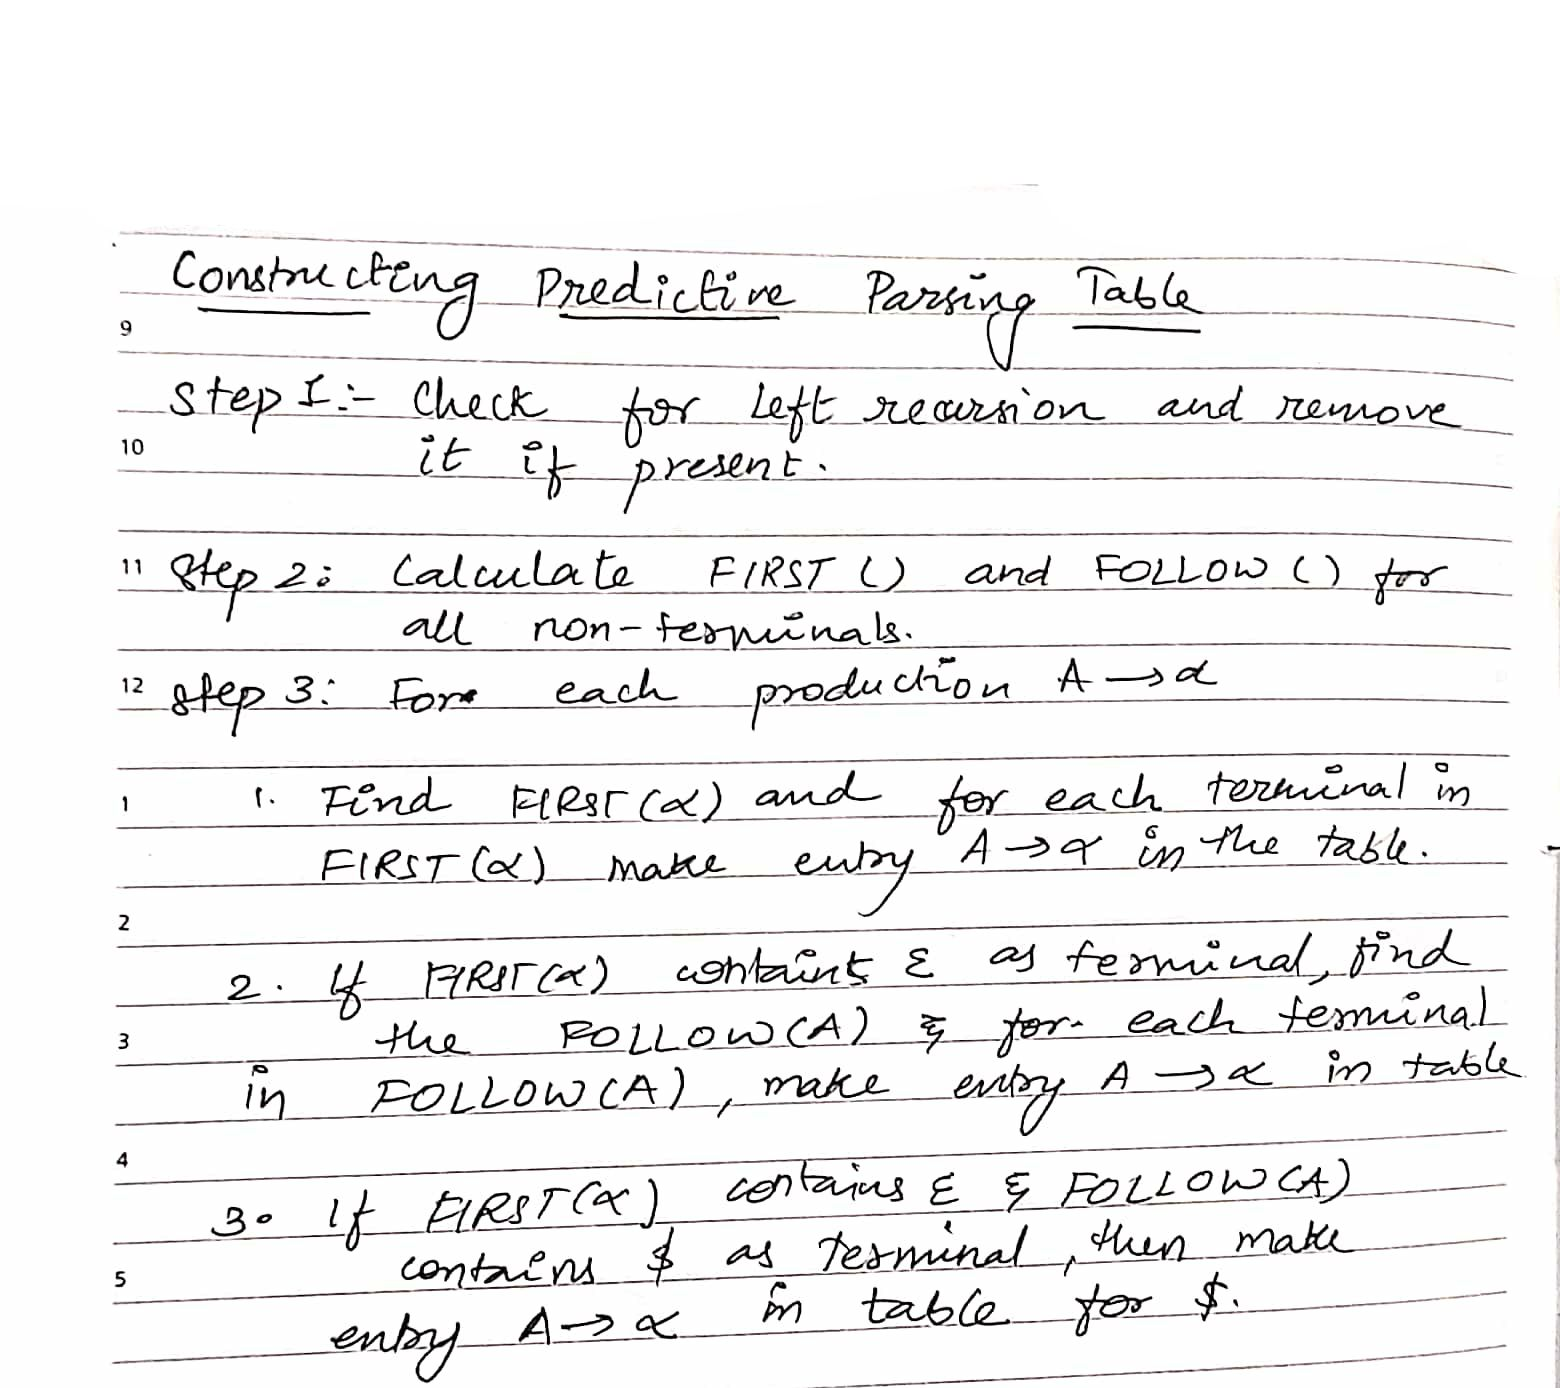 Constructing Predictive Parsing Table
9
Step I:- Check for Left recursion and remove
10
it if present.
11 Step 2: Calculate FIRST () and FOLLOW () for
all non-terminals.
12 Step 3: For each production A → α
1 1. Find FIRST (α) and for each terminal in
FIRST (α) make entry A → α in the table.
2
2. If FIRST (α) contains ε as terminal, find
3 the FOLLOW (A) & for each terminal
in FOLLOW (A), make entry A → α in table
4
3. If FIRST (α) contains ε & FOLLOW (A)
5 contains $ as terminal, then make
entry A → α in table for $.